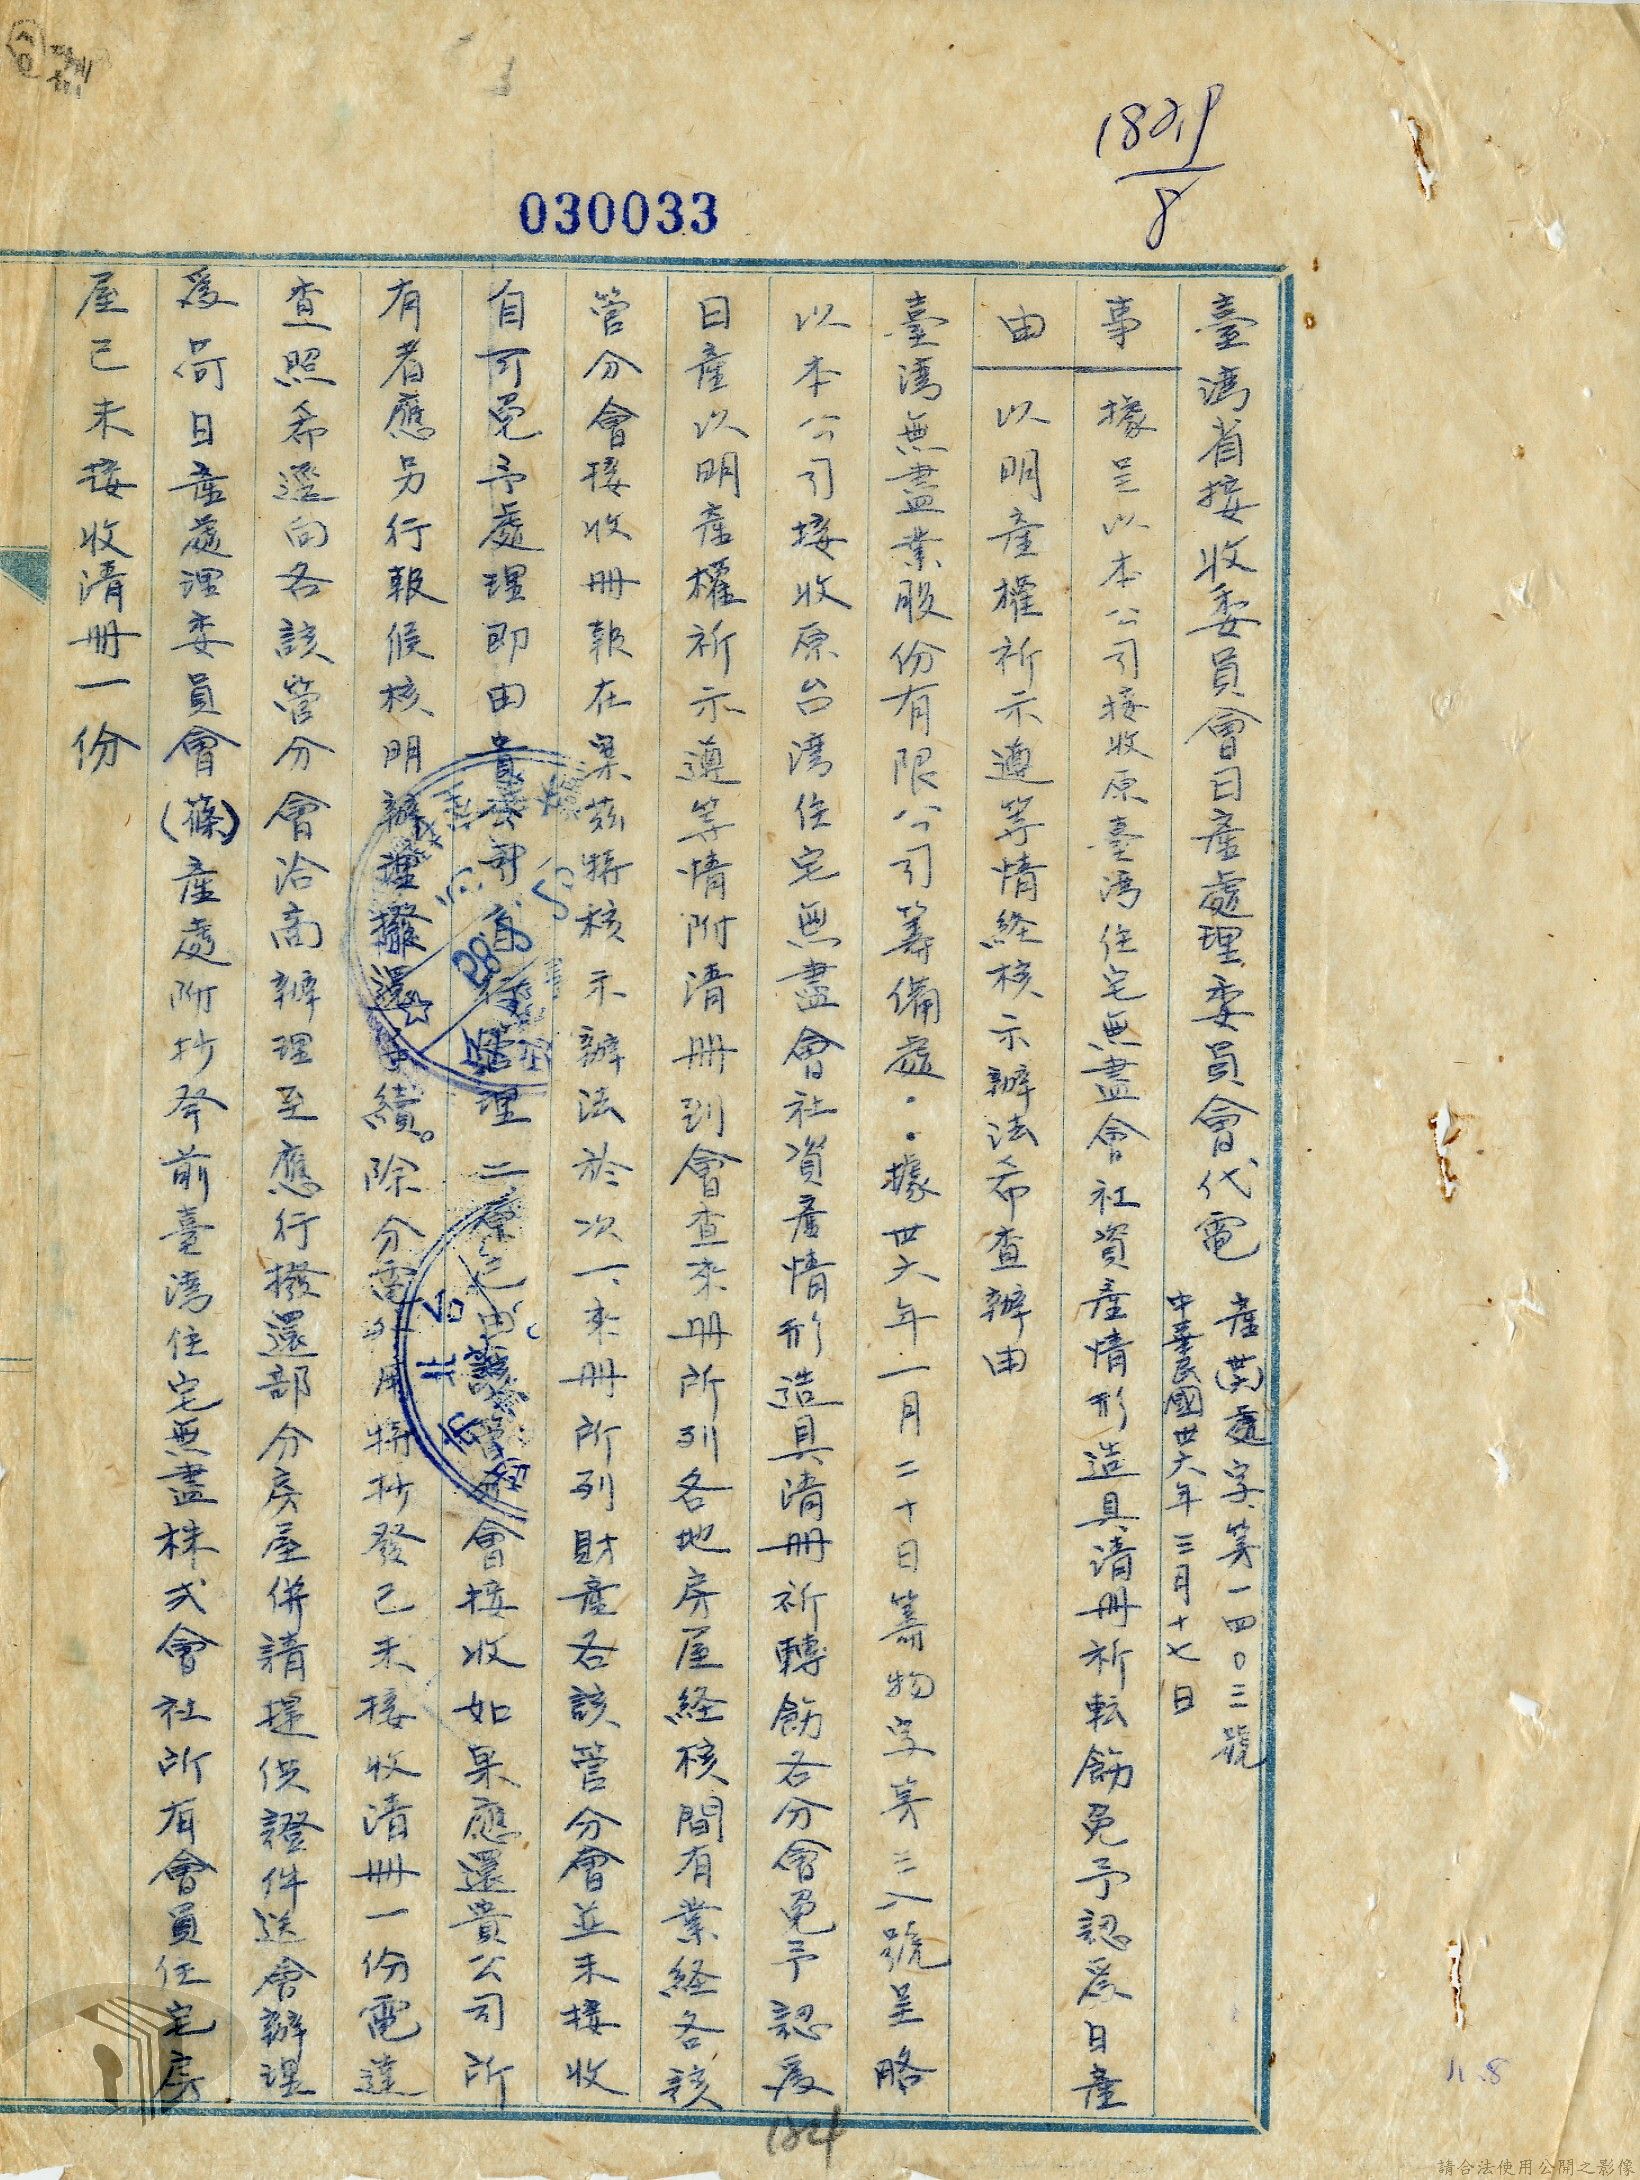 1821/8
030033
臺灣省接收委員會日產處理委員會代電
產(卅六)處字第一四〇三號
中華民國卅六年三月十七日
事
據呈以本公司接收原臺灣住宅無盡會社資產情形造具清冊祈転飭免予認爲日產
由
以明產權祈示遵等情経核示辦法希查辦由
臺灣無盡業股份有限公司籌備處：據卅六年一月二十日籌物字第二八號呈略
以本公司接收原台灣住宅無盡會社資產情形造具清冊祈轉飭各分會免予認爲
日產以明產權祈示遵等情附清冊到會查來冊所列各地房屋経核間有業経各該
管分會接收冊報在案茲特核示辦法於次一、來冊所列財產各該管分會並未接收
自可免予處理即由貴公司自行管理二、原已由該管分會接收如果應還貴公司所
有者應另行報候核明辦理撥還手續。除分電外用特抄發已未接收清冊一份電達
查照希逕向各該管分會洽商辦理至應行撥還部分房屋併請提供證件送會辦理
爲荷日產處理委員會(篠)產處附抄發前臺灣住宅無盡株式會社所有會員住宅房
屋已未接收清冊一份
124
11.8
請合法使用公開之影像